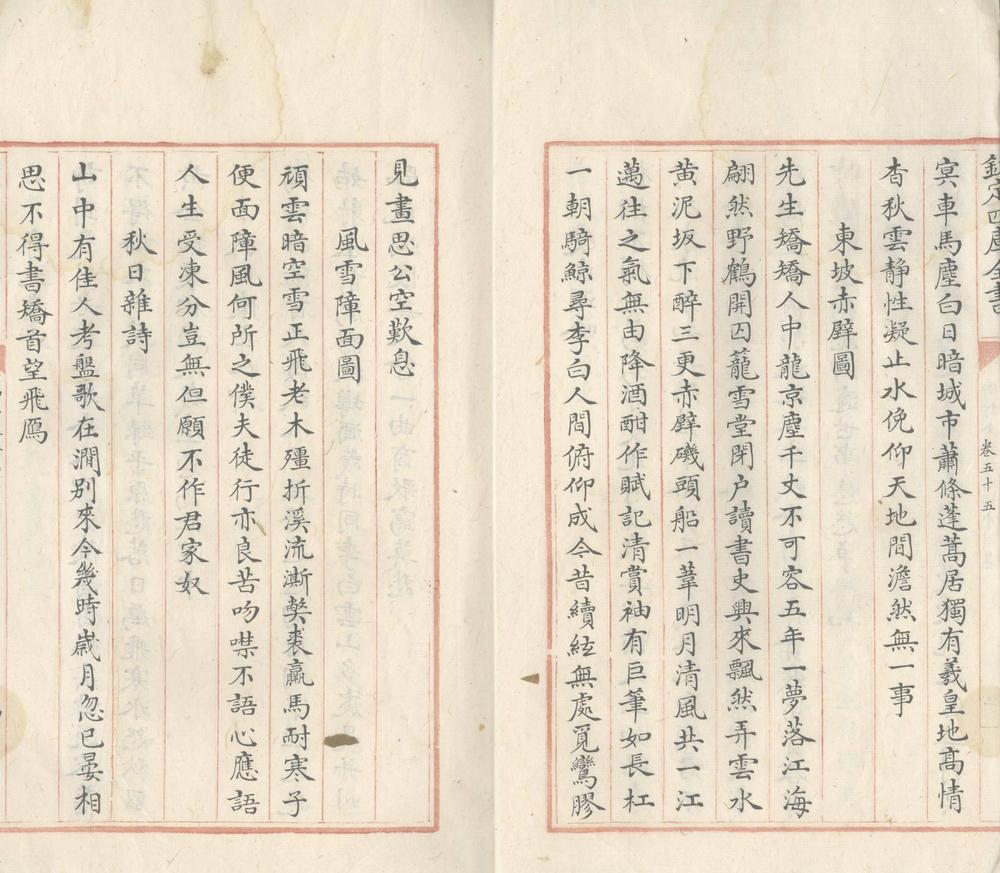 欽定四庫全書
卷五十五
㝠車馬塵白日暗城市蕭條蓬蒿居獨有羲皇地髙情
杳秋雲静性凝止水俛仰天地間澹然無一事
東坡赤壁圖
先生矯矯人中龍京塵千丈不可容五年一夢落江海
翩然野鶴開囚籠雪堂閉户讀書史興來飄然弄雲水
黄泥坂下醉三更赤壁磯頭船一葦明月清風共一江
邁往之氣無由降酒酣作賦記清賞袖有巨筆如長杠
一朝騎鯨尋李白人間俯仰成今昔續絃無處覓鸞膠
見畫思公空歎息
風雪障面圖
頑雲暗空雪正飛老木殭折溪流澌獘裘羸馬耐寒子
便面障風何所之僕夫徒行亦良苦吻噤不語心應語
人生受凍分豈無但願不作君家奴
秋日雜詩
山中有佳人考盤歌在澗别來今幾時嵗月忽已晏相
思不得書矯首望飛鴈